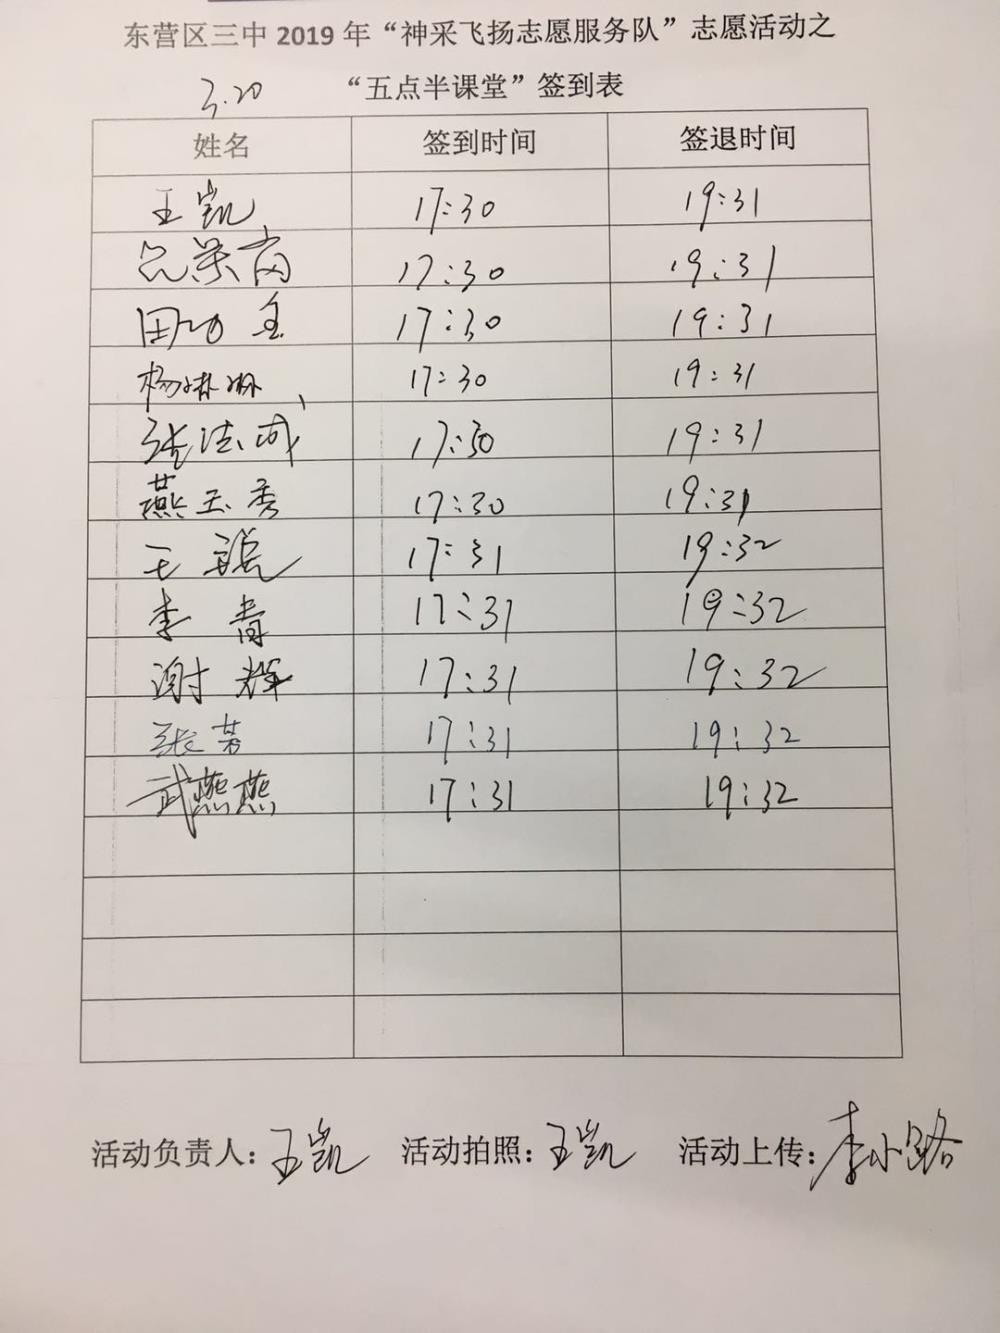 东营区三中 2019 年“神采飞扬志愿服务队”志愿活动之
3.20 “五点半课堂”签到表
姓名 签到时间 签退时间
王凯 17:30 19:31
17:30 19:31
田 17:30 19:31
杨琳琳 17:30 19:31
张 17:30 19:31
燕玉秀 17:30 19:31
王 17:31 19:32
李青 17:31 19:32
谢辉 17:31 19:32
张芳 17:31 19:32
武燕燕 17:31 19:32
活动负责人：王凯 活动拍照：王凯 活动上传：李小路